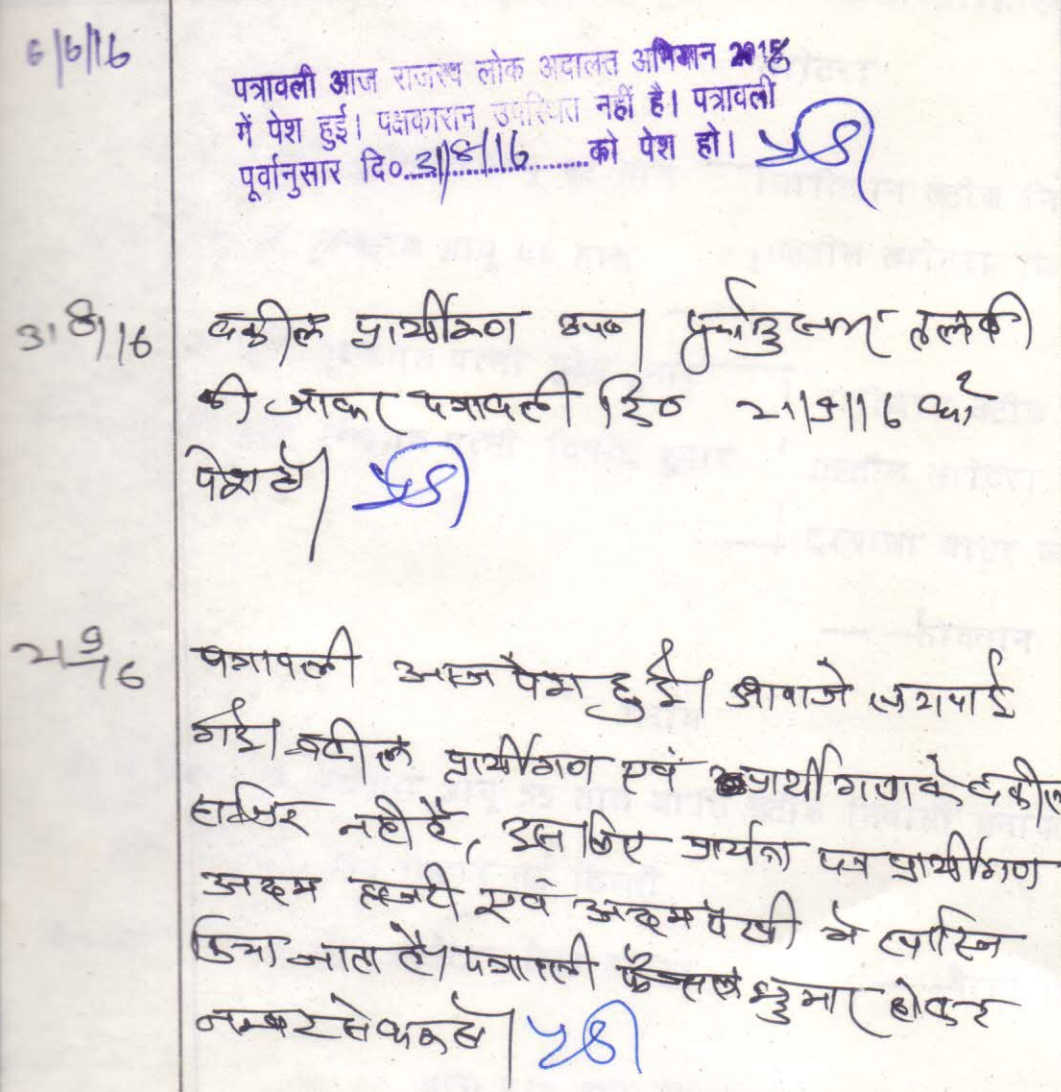 6/6/16
पत्रावली आज राजस्व लोक अदालत अभियान 2016
में पेश हुई। पक्षकारान उपस्थित नहीं है। पत्रावली
पूर्वानुसार दि०..31/8/16..........को पेश हो।
31/8/16
वकील प्रार्थीगण उप० पूर्वानुसार तलबी
की जाकर पत्रावली दि० 21/9/16 को
पेश हो।
21/9/16
पत्रावली आज पेश हुई। आवाजे लगवाई
गई। वकील प्रार्थीगण एवं अप्रार्थीगण के वकील
हाजिर नही है, इसलिए प्रार्थना पत्र प्रार्थीगण
अदम हाजरी एवं अदम पैरवी मे खारिज
किया जाता है। पत्रावली फैसल शुमार होकर
नम्बर से कम हो।